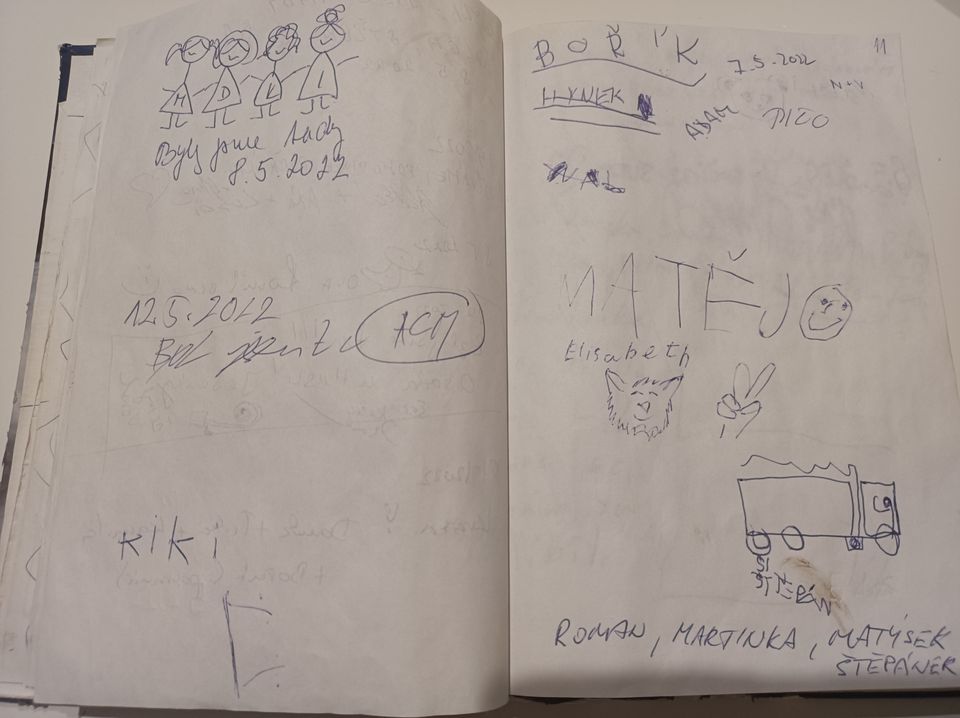 M D L I
Byly jsme tady
8.5.2022
12.5.2022
ACM
kiki
11
BOŘÍK
7.5.2022
HYNEK
ADAM
MATĚJ
Elisabeth
ŠTĚPÁN
ROMAN, MARTINKA, MATÝSEK
ŠTĚPÁNEK